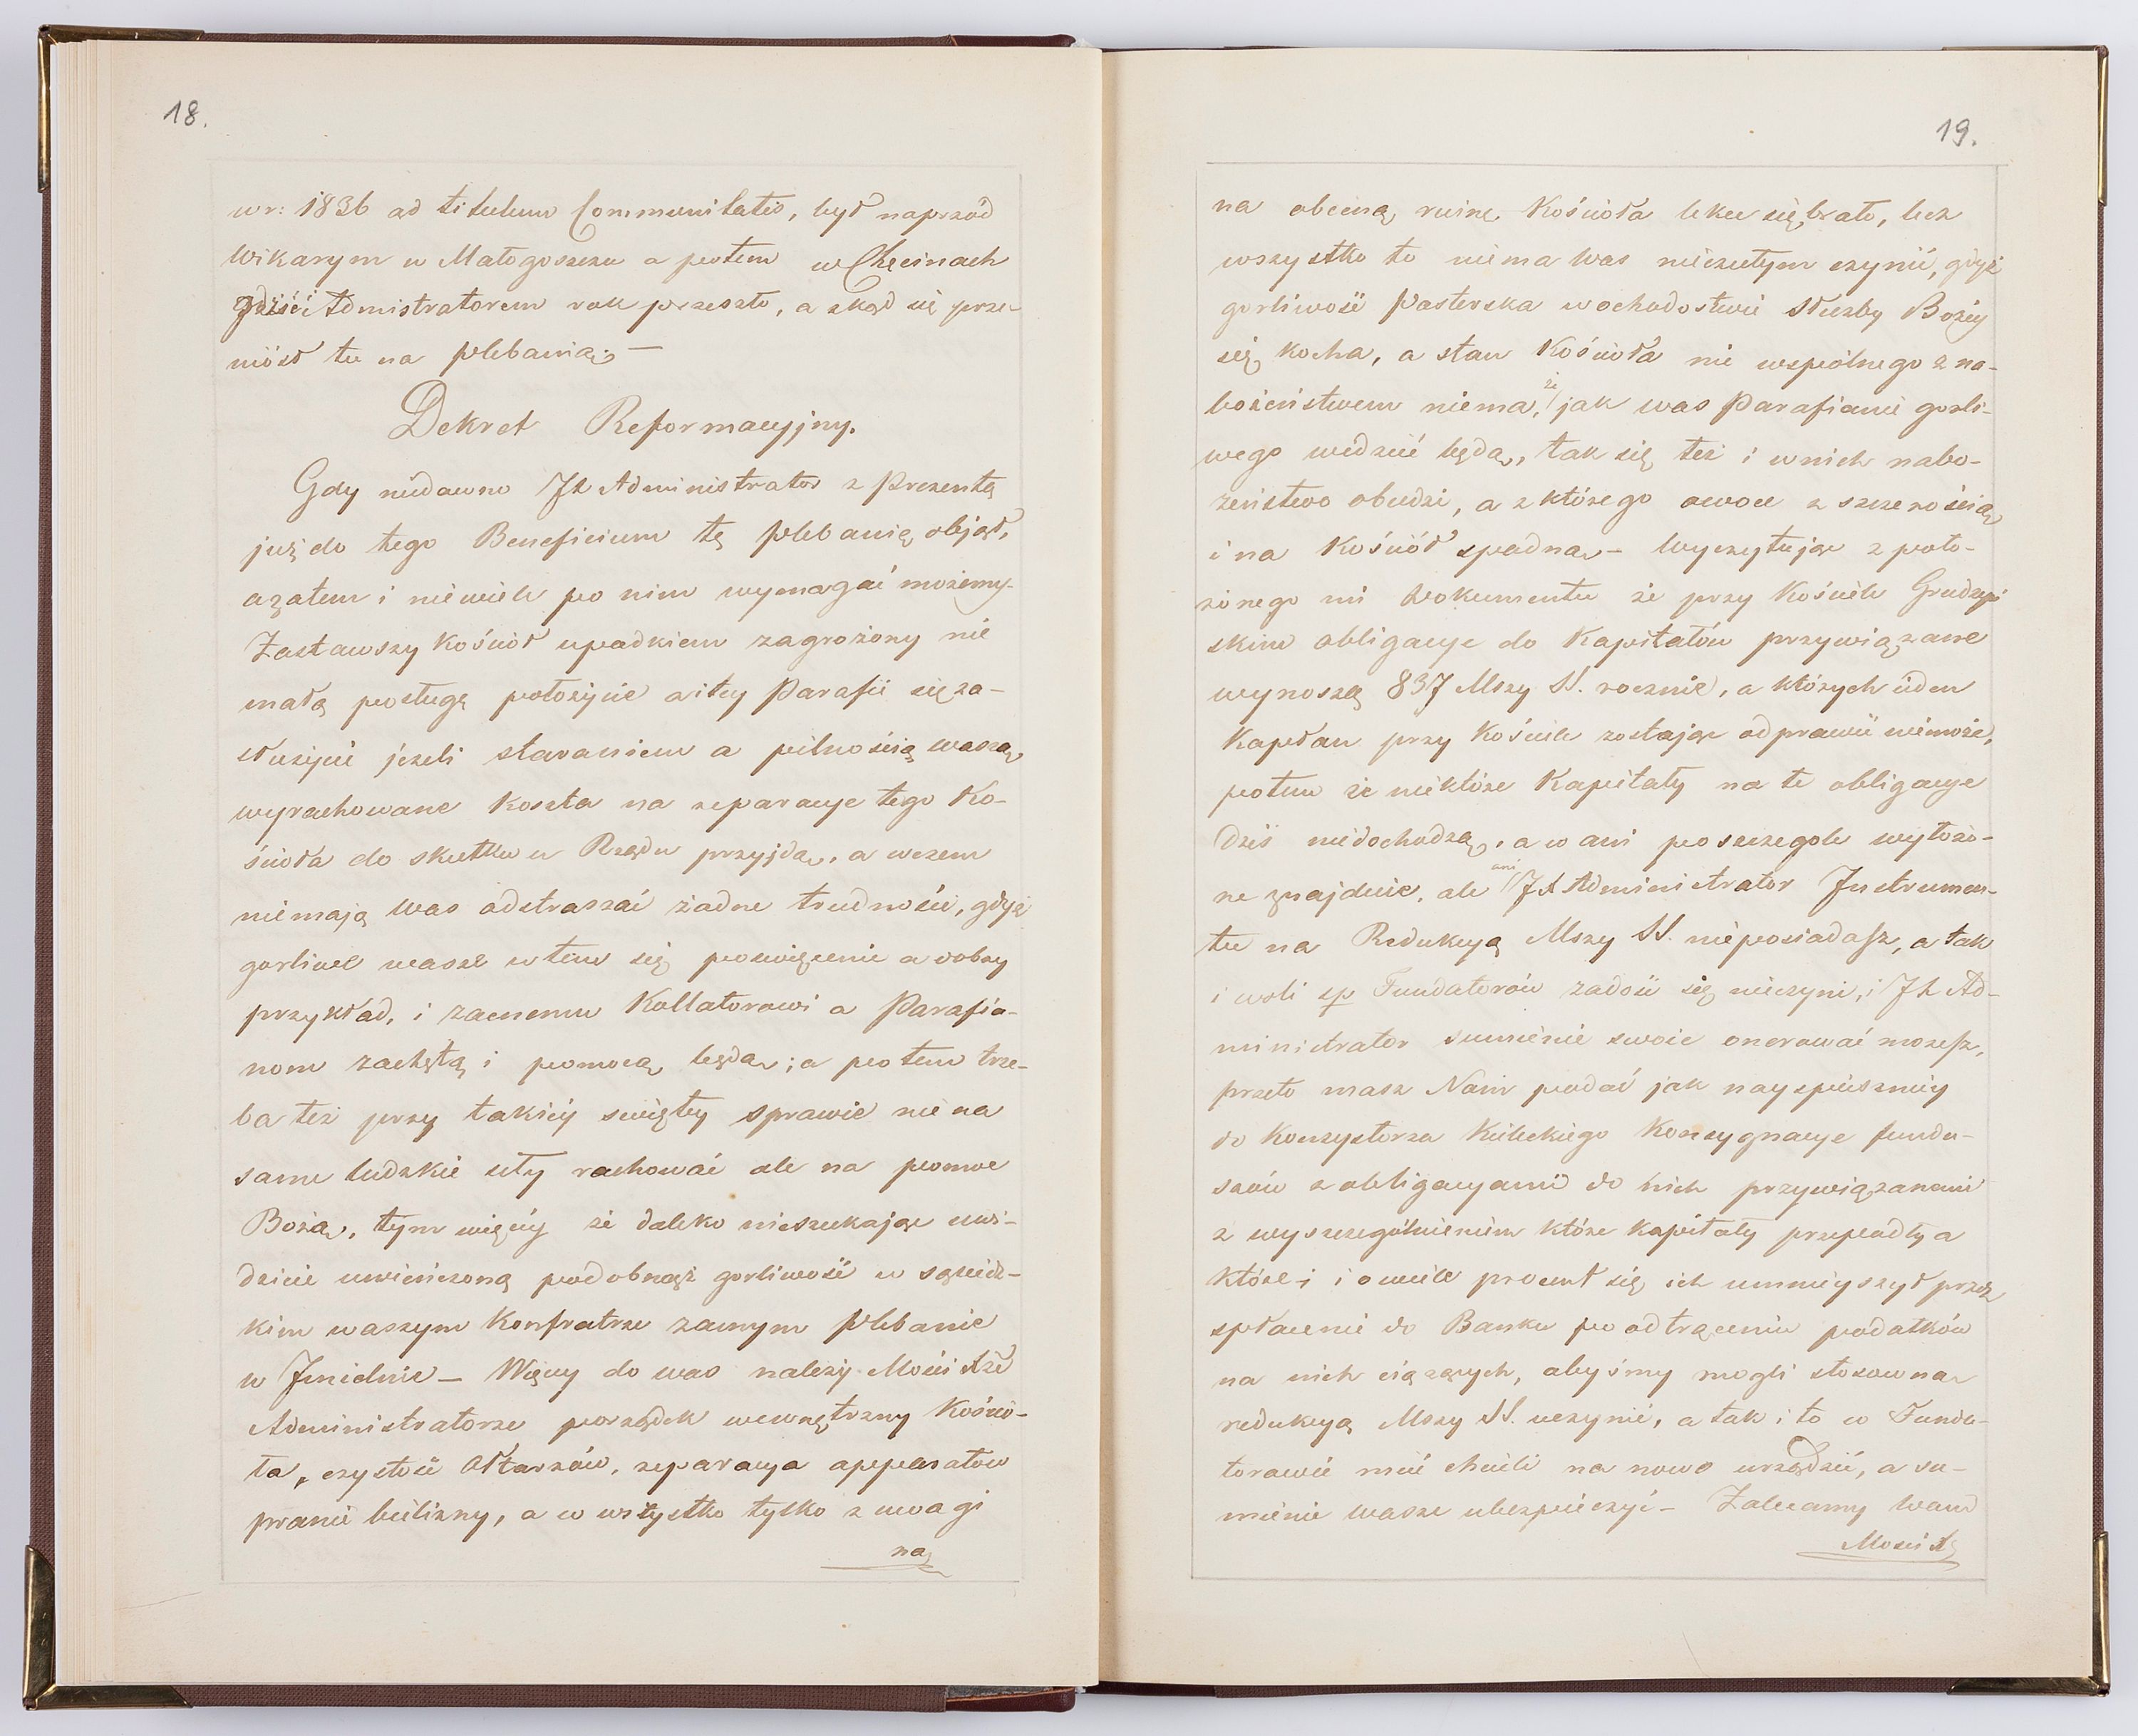 18.
wr: 1836 ad titulum Communitatis, był naprzód
Wikarym w Małogoszczu a potem w Chęcinach
gdzieś i Admistratorem rok przeszło, a skąd się prze-
niósł tu na plebanią. —
Dekret Reformacyjny.
Gdy niedawno JX Administrator z Prezentą
już do tego Beneficium tę plebanią objął,
a zatem i niewiele po nim wymagać możemy.
Zastawszy kościół upadkiem zagrożony nie
małą posługę położycie a i tey Parafii się za-
służycie jeżeli staraniem a pilnością waszą
wyrachowane koszta na reparacye tego Ko-
ścioła do skutku u Rządu przyjdą, a w czem
niemają was odstraszać żadne trudności, gdyż
gorliwe wasze w tem się poświęcenie a dobry
przykład, i zacnemu Kollatorowi a Parafia-
nom zachętą i pomocą będą; a potem trze-
ba też przy takiéy świętey sprawie nie na
same ludzkie siły rachować ale na pomoc
Bożą, tym więcéy że daleko nieszukając uwi-
dzicie uwieńczoną podobnąż gorliwość w sąsiedz-
kim waszym Konfratrze zacnym Plebanie
w Imielnie — Więcey do was należy Mości Xże
Administratorze porządek wewnętrzny Kościo-
ła, czystość Ołtarzów, reparacya apparatów
pranie bielizny, a co wszystko tylko z uwagi
na
19.
na obecną ruinę Kościoła lekce się brało, lecz
wszystko to niema was nieczułym czynić, gdyż
gorliwość Pasterska w ochędostwie Służby Bożey
się kocha, a stan Kościoła nic wspólnego z na-
bożeństwem niema, że jak was Parafianie gorli-
wego widzieć będą, tak się też i w nich nabo-
żeństwo obudzi, a z którego owoce z szczerością
i na Kościół spadną — Wyczytując z poło-
żonego mi Dokumentu że przy Kościele Grudzyń
skim obligacye do Kapitałów przywiązane
wynoszą 837 Mszy SS. rocznie, a których ieden
Kapłan przy Kościele zostając odprawić niemoże,
potem że niektóre Kapitały na te obligacye
dziś niedochodzą, a co ani poszczegole wyłożo-
ne znajduie, ale ani JX Administrator Instrumen-
tu na Redukcyą Mszy SS. nieposiadasz, a tak
i woli śp Fundatorów zadość się nieczyni, i JX Ad-
ministrator sumienie swoie onerować możesz,
przeto masz Nam podać jak nayspieszniéy
do Konsystorza Kieleckiego Konsygnacye fundu-
szów z obligacyami do nich przywiązanemi
z wyszczególnieniem które Kapitały przepadły a
które i i o wiele procent się ich umnieyszył przez
spłacenie do Banku po odtrąceniu podatków
na nich ciążących, abyśmy mogli stosowną
redukcyą Mszy SS. uczynić, a tak i to co Funda-
torowie mieć chcieli na nowo urządzić, a su-
mienie wasze ubezpieczyć — Zalecamy Wam
Mości X